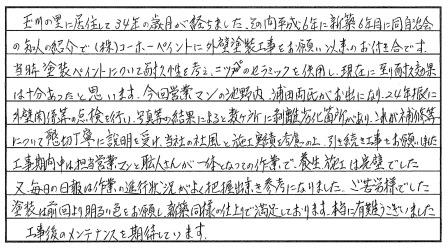 玉川の里に居住して34年の歳月が経ちました。その間平成6年に新築6年目に同自治会
の友人の紹介で(株)コーホーペイントに外壁塗装工事をお願い以来のお付き合です。
当時塗装ペイントについて耐久性を考え、ニッカのセラミックを使用し、現在に至り耐校効果
は十分あったと思います。今回営業マンの池野内、浦田両氏がお出になり、24年振に
外壁関係等の点検を行い、写真等の結果によると数ヶ所に剥離劣化箇所があり、これが補修等
について懇切丁寧に説明を受け、当社の社風と施工実績を考慮の上、引き続き工事をお願いした
工事期間中は担当営業マンと職人さんが一体となっての作業で、養生、施工は完璧でした
又、毎日の日報は作業の進行状況がよく把握出来参考になりました。ご苦労様でした
塗装は前回より明るい色をお願し、新築同様の仕上りで満足しております。本当に有難うございました
工事後のメンテナンスを期待しています。